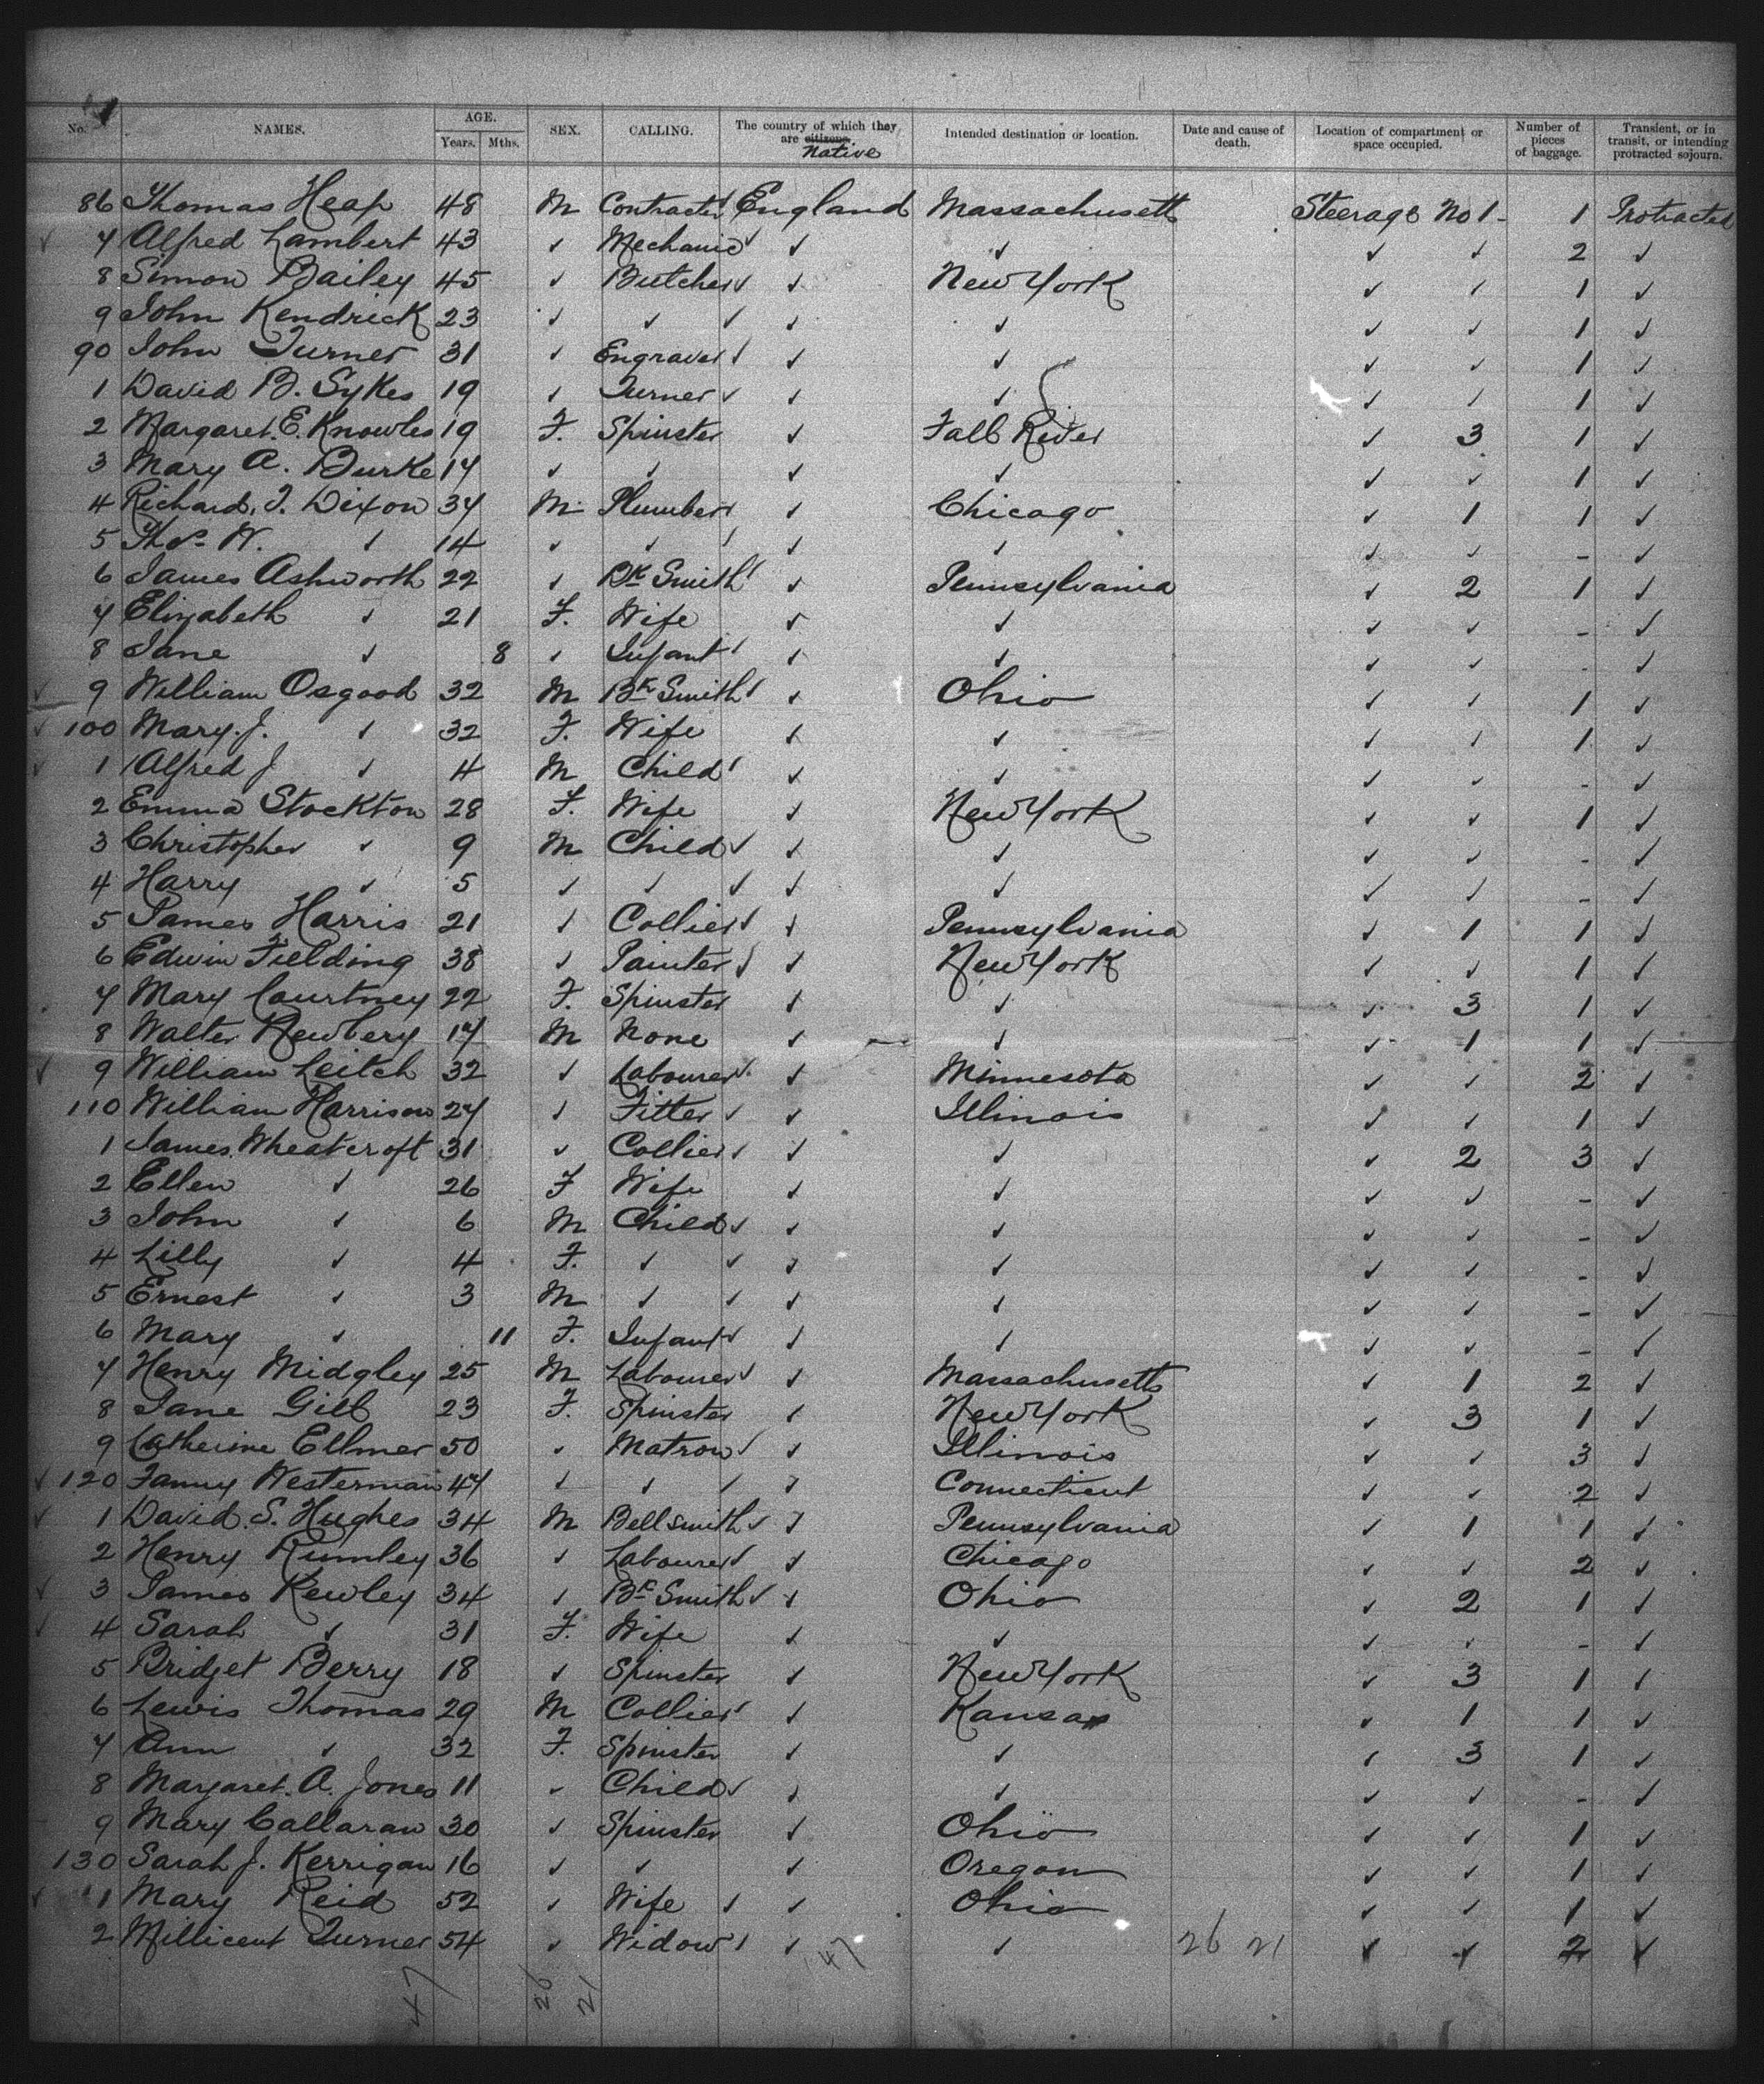 No. NAMES. AGE. Years. Mths. SEX. CALLING. The country of which they are citizens. Native Intended destination or location. Date and cause of death. Location of compartment or space occupied. Number of pieces of baggage. Transient, or in transit, or intending protracted sojourn.
86 Thomas Heap 48 M Contractor England Massachusetts Steerage No 1 - 1 Protracted
✓ 7 Alfred Lambert 43 ✓ Mechanic ✓ ✓ ✓ ✓ ✓ 2 ✓
8 Simon Bailey 45 ✓ Butcher ✓ ✓ New York ✓ ✓ 1 ✓
9 John Kendrick 23 ✓ ✓ ✓ ✓ ✓ ✓ ✓ 1 ✓
90 John Turner 31 ✓ Engraver ✓ ✓ ✓ ✓ ✓ 1 ✓
1 David B. Sykes 19 ✓ Turner ✓ ✓ ✓ ✓ ✓ 1 ✓
2 Margaret. E. Knowles 19 F. Spinster ✓ Fall River ✓ 3 1 ✓
3 Mary A. Burke 17 ✓ ✓ ✓ ✓ ✓ ✓ 1 ✓
4 Richard. J. Dixon 37 M Plumber ✓ ✓ Chicago ✓ 1 1 ✓
5 Thos W. ✓ 14 ✓ ✓ ✓ ✓ ✓ ✓ ✓ - ✓
6 James Ashworth 22 ✓ Bk Smith ✓ ✓ Pennsylvania ✓ 2 1 ✓
7 Elizabeth ✓ 21 F. Wife ✓ ✓ ✓ ✓ - ✓
8 Jane ✓ 8 ✓ Infant ✓ ✓ ✓ ✓ ✓ - ✓
✓ 9 William Osgood 32 M Bk Smith ✓ ✓ Ohio ✓ ✓ 1 ✓
✓ 100 Mary. J. ✓ 32 F. Wife ✓ ✓ ✓ ✓ 1 ✓
✓ 1 Alfred J ✓ 4 M Child ✓ ✓ ✓ ✓ ✓ - ✓
2 Emma Stockton 28 F. Wife ✓ New York ✓ ✓ 1 ✓
3 Christopher ✓ 9 M Child ✓ ✓ ✓ ✓ ✓ - ✓
4 Harry ✓ 5 ✓ ✓ ✓ ✓ ✓ ✓ ✓ - ✓
5 James Harris 21 ✓ Collier ✓ ✓ Pennsylvania ✓ 1 1 ✓
6 Edwin Fielding 38 ✓ Painter ✓ ✓ New York ✓ ✓ 1 ✓
7 Mary Courtney 22 F. Spinster ✓ ✓ ✓ 3 1 ✓
8 Walter Newbery 17 M None ✓ ✓ ✓ 1 1 ✓
✓ 9 William Leitch 32 ✓ Labourer ✓ ✓ Minnesota ✓ ✓ 2 ✓
110 William Harrison 27 ✓ Fitter ✓ ✓ Illinois ✓ ✓ 1 ✓
1 James. Wheatcroft 31 ✓ Collier ✓ ✓ ✓ ✓ 2 3 ✓
2 Ellen ✓ 26 F Wife ✓ ✓ ✓ ✓ - ✓
3 John ✓ 6 M Child ✓ ✓ ✓ ✓ ✓ - ✓
4 Lilly ✓ 4 F. ✓ ✓ ✓ ✓ ✓ ✓ - ✓
5 Ernest ✓ 3 M ✓ ✓ ✓ ✓ ✓ ✓ - ✓
6 Mary ✓ 11 F. Infant ✓ ✓ ✓ ✓ ✓ - ✓
7 Henry Midgley 25 M Labourer ✓ ✓ Massachusetts ✓ 1 2 ✓
8 Jane Gill 23 F. Spinster ✓ New York ✓ 3 1 ✓
9 Catherine Ellmer 50 ✓ Matron ✓ ✓ Illinois ✓ ✓ 3 ✓
✓ 120 Fanny Westerman 47 ✓ ✓ ✓ ✓ Connecticut ✓ ✓ 2 ✓
✓ 1 David. S. Hughes 34 M Bellsmith ✓ ✓ Pennsylvania ✓ 1 1 ✓
2 Henry Rumley 36 ✓ Labourer ✓ ✓ Chicago ✓ ✓ 2 ✓
✓ 3 James Kewley 34 ✓ Bk Smith ✓ ✓ Ohio ✓ 2 1 ✓
✓ 4 Sarah ✓ 31 F. Wife ✓ ✓ ✓ ✓ - ✓
5 Bridget Berry 18 ✓ Spinster ✓ New York ✓ 3 1 ✓
6 Lewis Thomas 29 M Collier ✓ ✓ Kansas ✓ 1 1 ✓
7 Ann ✓ 32 F. Spinster ✓ ✓ ✓ 3 1 ✓
8 Margaret. A. Jones 11 ✓ Child ✓ ✓ ✓ ✓ ✓ - ✓
9 Mary Callaran 30 ✓ Spinster ✓ Ohio ✓ ✓ 1 ✓
130 Sarah J. Kerrigan 16 ✓ ✓ ✓ Oregon ✓ ✓ 1 ✓
✓ 1 Mary Reid 52 ✓ Wife ✓ ✓ Ohio ✓ ✓ 1 ✓
2 Millicent Turner 54 ✓ Widow ✓ ✓ ✓ 26 21 ✓ ✓ 2 ✓
47 26 21 47